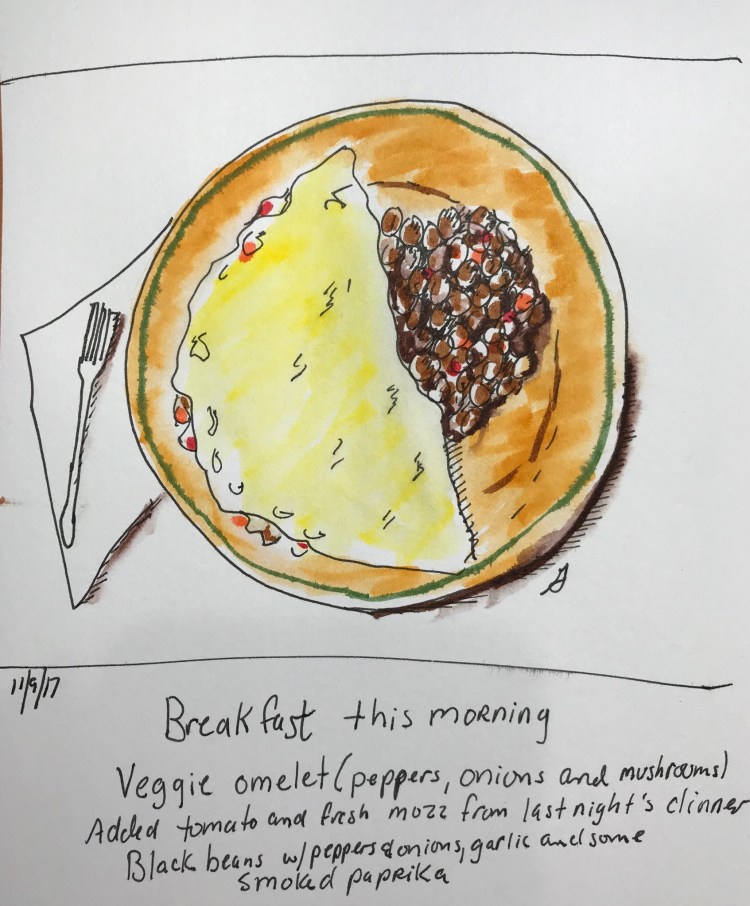 11/9/17
Breakfast this morning
Veggie omelet (peppers, onions and mushrooms)
Added tomato and fresh mozz from last night's dinner
Black beans w/ peppers & onions, garlic and some
smoked paprika